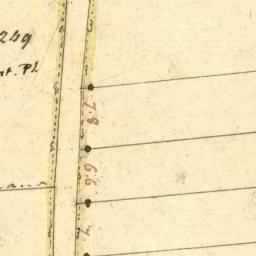 249
nt. Pl
7.8
6.6
7